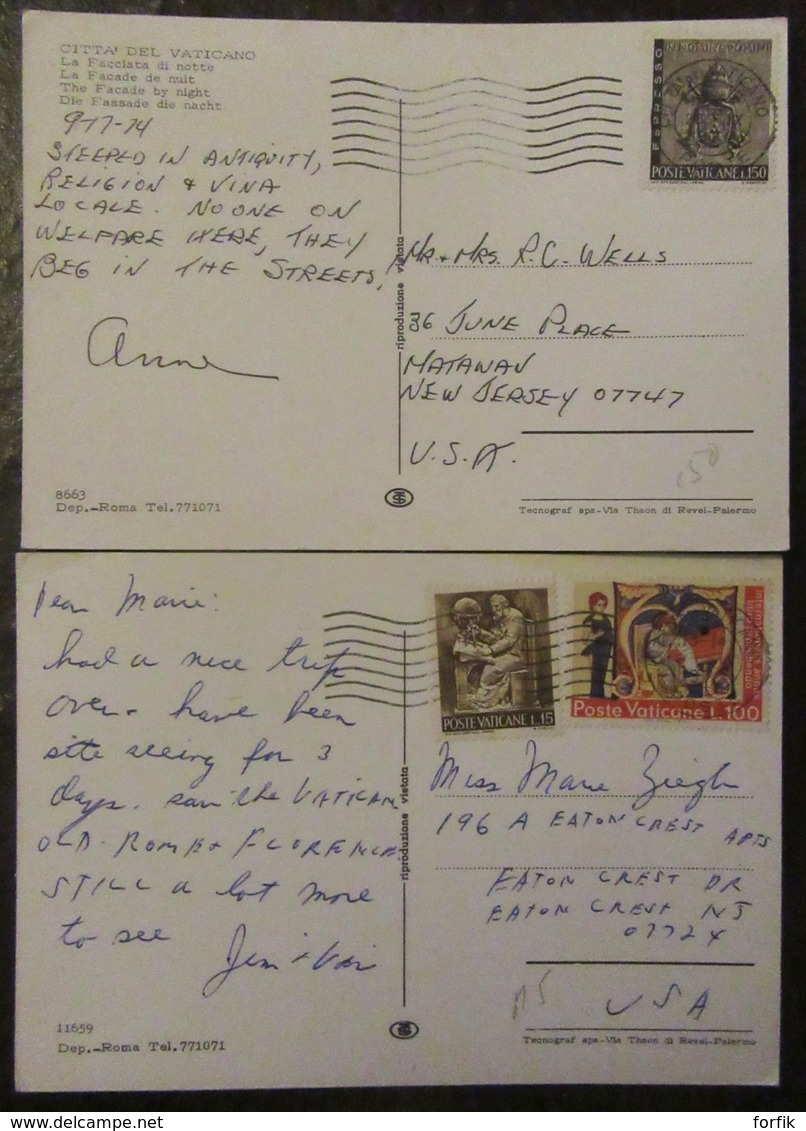 CITTA' DEL VATICANO
La Facciata di notte
La Facade de nuit
The Facade by night
Die Fassade die nacht
9-17-74
STEEPED IN ANTIQUITY,
RELIGION & VINA
LOCALE. NO ONE ON
WELFARE HERE, THEY
BEG IN THE STREETS!
Anne
8663
Dep.-Roma Tel.771071
riproduzione vietata
ESPRESSO
POSTE VATICANE L.150
MR. & MRS. R.C. WELLS
36 JUNE PLACE
MATAWAN
NEW JERSEY 07747
U.S.A.
150
Tecnograf spa-Via Thaon di Revel-Palermo
Dear Marie:
had a nice trip
over & have been
site seeing for 3
days. saw the VATICAN,
OLD ROME & FLORENCE
STILL a lot more
to see
Jim &
11659
Dep.-Roma Tel.771071
riproduzione vietata
POSTE VATICANE L.15
Poste Vaticane L.100
Miss Marie
196 A EATON CREST APTS
EATON CREST DR
EATON CREST NJ
07724
USA
115
Tecnograf spa-Via Thaon di Revel-Palermo
forfik